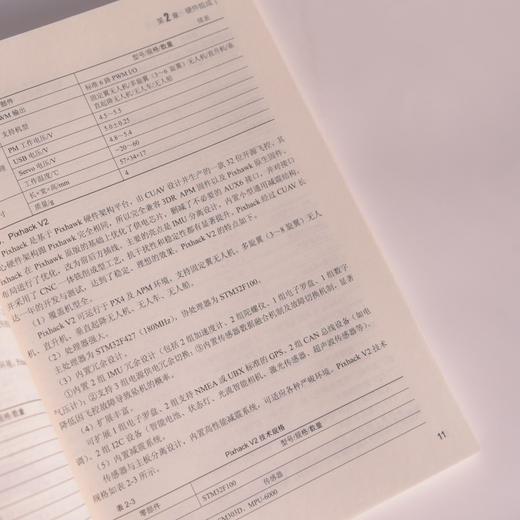 第2章 硬件组成
续表
部件 型号/规格/数量
PWM 输出 标准6路 PWM I/O
支持机型 固定翼无人机/多旋翼（3～6旋翼）无人机/直升机/垂直起降无人机/无人车/无人船
PM 工作电压/V 4.5～5.5
USB 电压/V 5.0±0.25
Servo 电压/V 4.8～5.4
工作温度/℃ -20～60
长×宽×高/mm 57×34×17
质量/g 4
Pixhack V2
Pixhack 是基于 Pixhawk 硬件架构平台，由 CUAV 设计并生产的一款32位开源飞控，其
心硬件架构跟 Pixhawk 完全相同，所以完全兼容 3DR APM 固件以及 Pixhawk 原生固件。
xhack 在 Pixhawk 原版的基础上优化了供电芯片，删减了不必要的 AUX6 接口，并对接口
布局进行了优化，改为前后方插线，主要的亮点是 IMU 分离设计，内置小型通用减震结构，
并采用了 CNC 一体铣削成型工艺，抗干扰性和稳定性都有显著提升，Pixhack 经过 CUAV 长
达一年的开发与测试，达到了稳定、理想的效果。Pixhack V2 的特点如下。
（1）覆盖机型全。
Pixhack V2 可运行于 PX4 及 APM 环境，支持固定翼无人机、多旋翼（3～8旋翼）无人
机、直升机、垂直起降无人机、无人车、无人船。
（2）处理器强大。
主处理器为 STM32F427（180MHz），协处理器为 STM32F100。
（3）内置冗余设计。
①内置2组 IMU 冗余设计（包括2组加速度计、2组陀螺仪、1组电子罗盘、1组数字
气压计）；②支持3组电源供电冗余切换；③内置传感器数据融合机制及故障切换机制，显著
降低因飞控故障导致坠机的概率。
（4）扩展丰富。
可扩展1组电子罗盘、2组支持 NMEA 或 UBX 标准的 GPS、2组 CAN 总线设备（如电
调）、2组 I2C 设备（智能电池、状态灯、光流智能相机、激光传感器、超声波传感器等）。
（5）内置减震系统。
传感器与主板分离设计，内置高性能减震系统，可适应各种严峻环境。Pixhack V2 技术
规格如表 2-3 所示。
表 2-3 Pixhack V2 技术规格
零部件 型号/规格/数量
STM32F100
传感器
MPU-6000
11